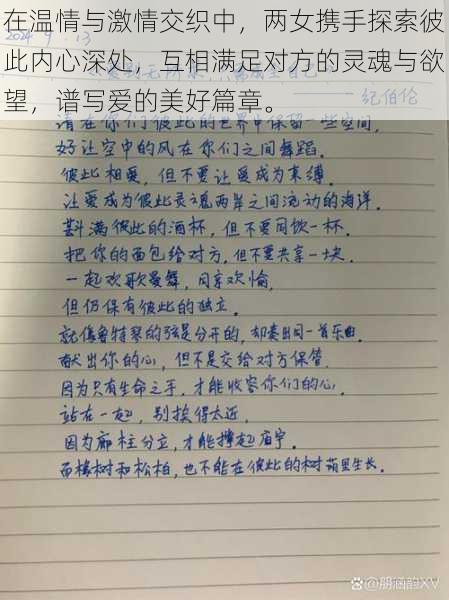 在温情与激情交织中，两女携手探索彼
此内心深处，互相满足对方的灵魂与欲
望，谱写爱的美好篇章。
纪伯伦
请在你们彼此的世界中保留一些空间，
好让空中的风在你们之间舞蹈。
彼此相爱，但不要让爱成为束缚，
让爱成为彼此灵魂两岸之间流动的海洋。
斟满彼此的酒杯，但不要同饮一杯。
把你的面包给对方，但不要共享一块。
一起欢歌曼舞，同享欢愉，
但仍保有彼此的独立。
就像鲁特琴的弦是分开的，却奏出同一首乐曲。
献出你的心，但不是交给对方保管，
因为只有生命之手，才能收容你们的心。
站在一起，别挨得太近，
因为廊柱分立，才能撑起庙宇。
而橡树和松柏，也不能在彼此的树荫里生长。
百家号@朋涵韵XV